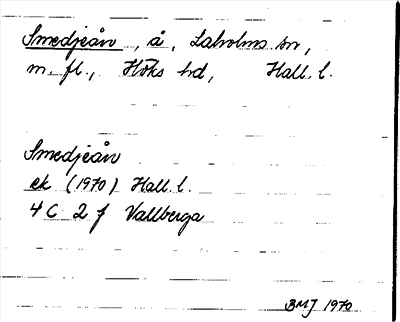 Smedjeån, å, Laholms sn,
m. fl., Höks hd, Hall. l.
Smedjeån
ek (1970) Hall. l.
4 C 2 f Vallberga
BMJ 1970